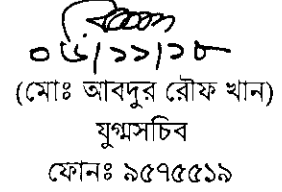 ০৬/১১/১৮
(মোঃ আবদুর রৌফ খান)
যুগ্মসচিব
ফোনঃ ৯৫৭৫৫১৯